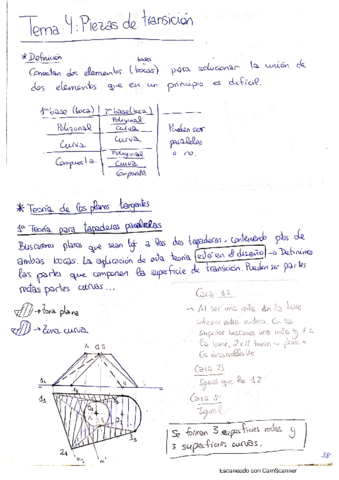 Tema 4: Piezas de transición
* Definición
bases
Conectan dos elementos (bocas) para solucionar la unión de
dos elementos que en un principio es difícil.
1ª base (boca) 2ª base (boca)
Poligonal Poligonal
Curva
Curva Curva
Compuesta Poligonal
Curva
Compuesta
Pueden ser
paralelas
o no.
* Teoría de los planos tangentes
1ª Teoría para tapaderas paralelas
Buscaremos planos que sean tg a las dos tapaderas, conteniendo ptos de
ambas bocas. La aplicación de esta teoría está en el diseño → Definimos
las partes que componen la superficie de transición. Pueden ser partes
rectas partes curvas...
→ Zona plana
→ Zona curva
→ Al ser una recta en la base
inferior
superior buscamos una recta
la base,
Es desarrollable
Igual que la 1ª
Igual
Se forman 3 superficies rectas y
3 superficies curvas.
38
Escaneado con CamScanner